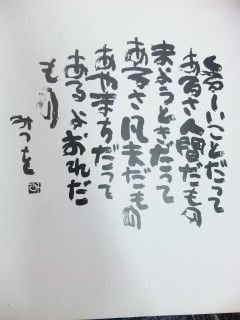 苦しいことだって
あるさ人間だもの
まようときだって
あるさ凡夫だもの
あやまちだって
あるよおれだ
もの
みつを